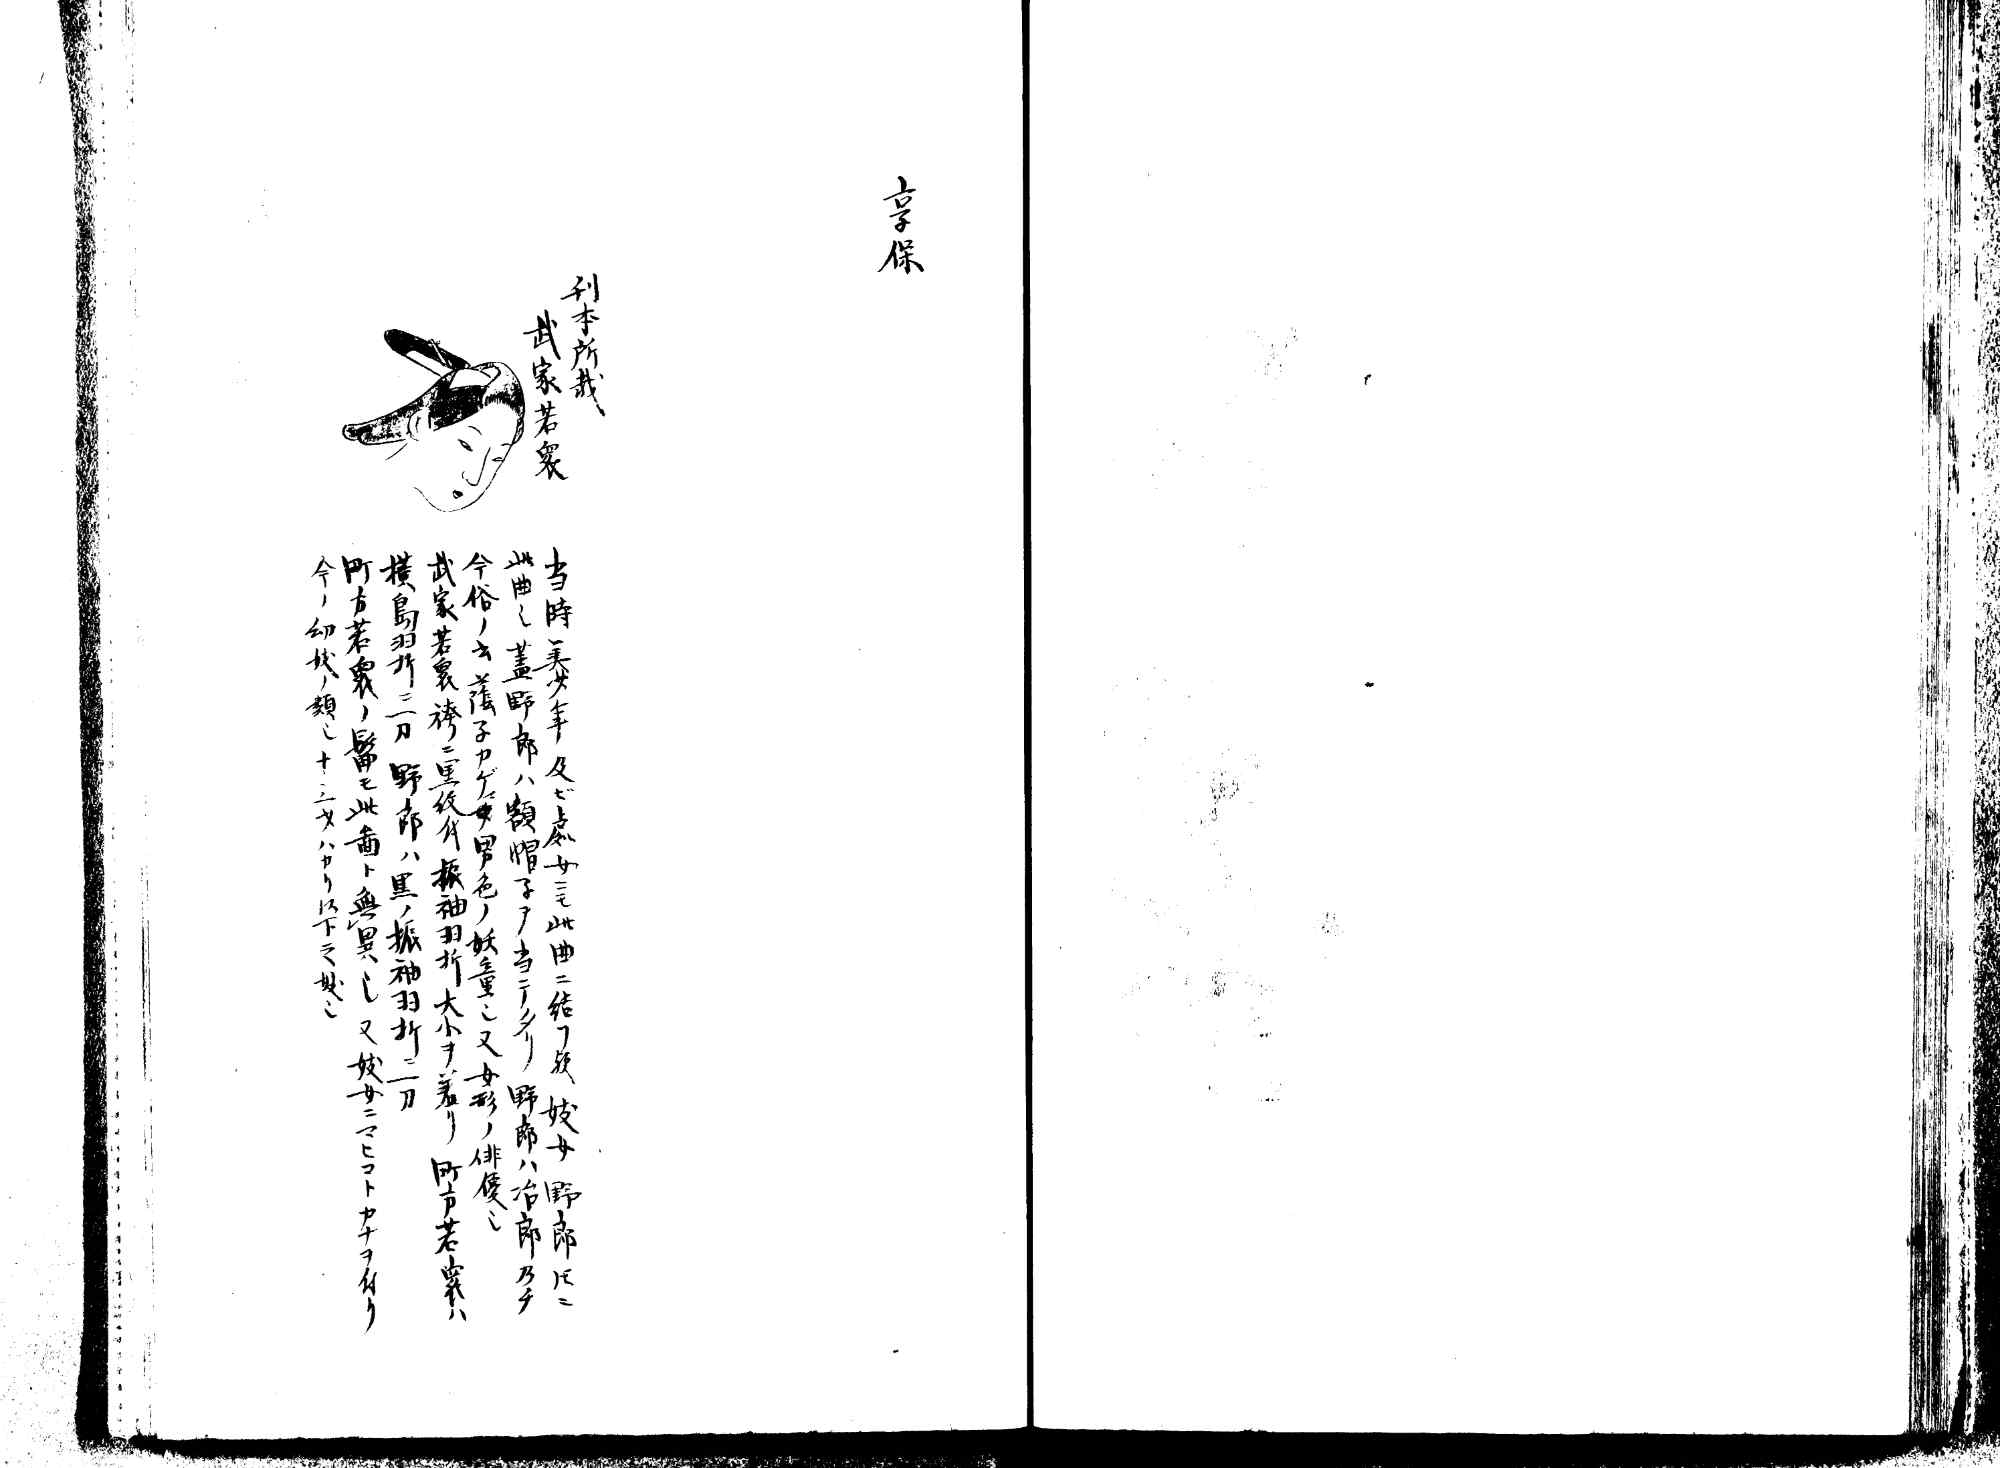 享保
刊本所載
武家若衆
当時美少年及ビ處女ニモ此曲ニ結フ歟妓女野郎トモニ
此曲也蓋野郎ハ額帽子ヲ当テタリ野郎ハ冶郎乃チ
今俗ノ云蔭子カゲマ男色ノ妖童也又女形ノ俳優也
武家若衆袴ニ黒紋付振袖羽折大小ヲ着リ町方若衆ハ
横島羽折ニ一刀野郎ハ黒ノ振袖羽折ニ一刀
町方若衆ノ髷モ此畵ト無異也又妓女ニマヒコトカナヲ付リ
今ノ幼妓ノ類也十二三才ハカリ以下之妓也